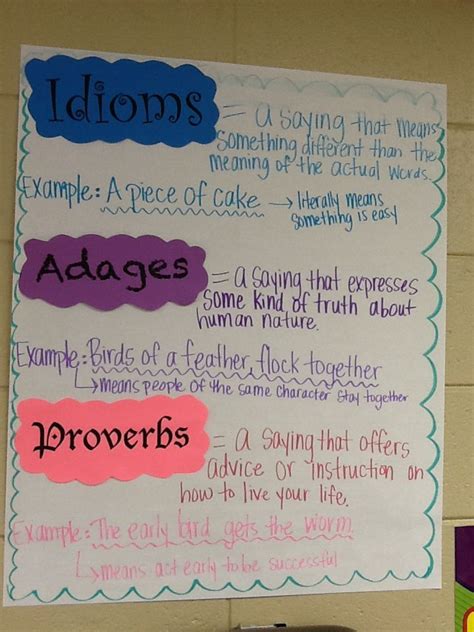 Idioms = a saying that means
something different than the
meaning of the actual words.
Example: A piece of cake → literally means
something is easy
Adages = a saying that expresses
some kind of truth about
human nature.
Example: Birds of a feather, flock together
means people of the same character stay together
Proverbs = a saying that offers
advice or instruction on
how to live your life.
Example: The early bird gets the worm.
means act early to be successful